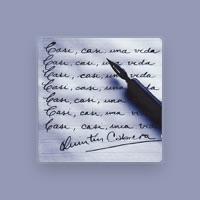 Casi, casi una vida
Casi, casi, una vida
Casi, casi, una vida
Casi, casi, una vida
Casi, casi, una vida
Casi, casi, una vida
Casi, casi, una vida
Quintín Cabrera